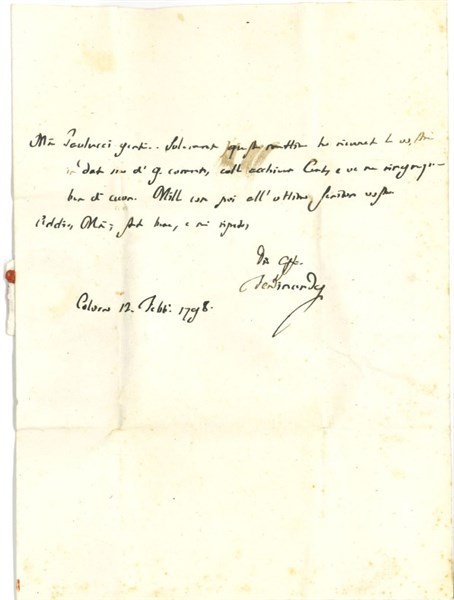 Mia Paulucci gent.. Solamente questa mattina ho ricevuto la vostra
in data di 9 corrente, coll'acchiusa Carta, e ve ne ringrazio
ben di cuore. Mille cose poi all'ottimo
Addio, Mia; state bene, e mi ripeto
Vr. affe.
Ferdinando
Colorno 12. Febb. 1798.